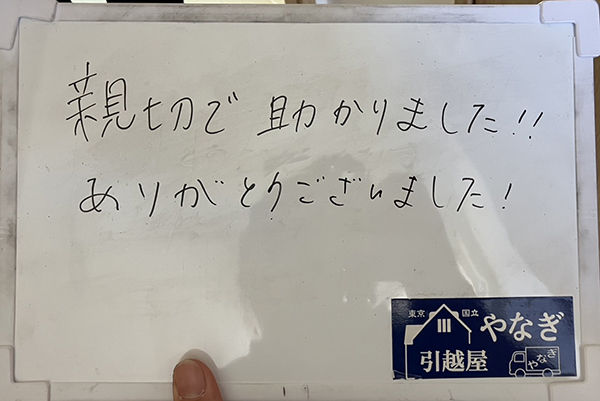 親切で 助かりました!!
ありがとうございました!
東京 国立 やなぎ
引越屋 やなぎ